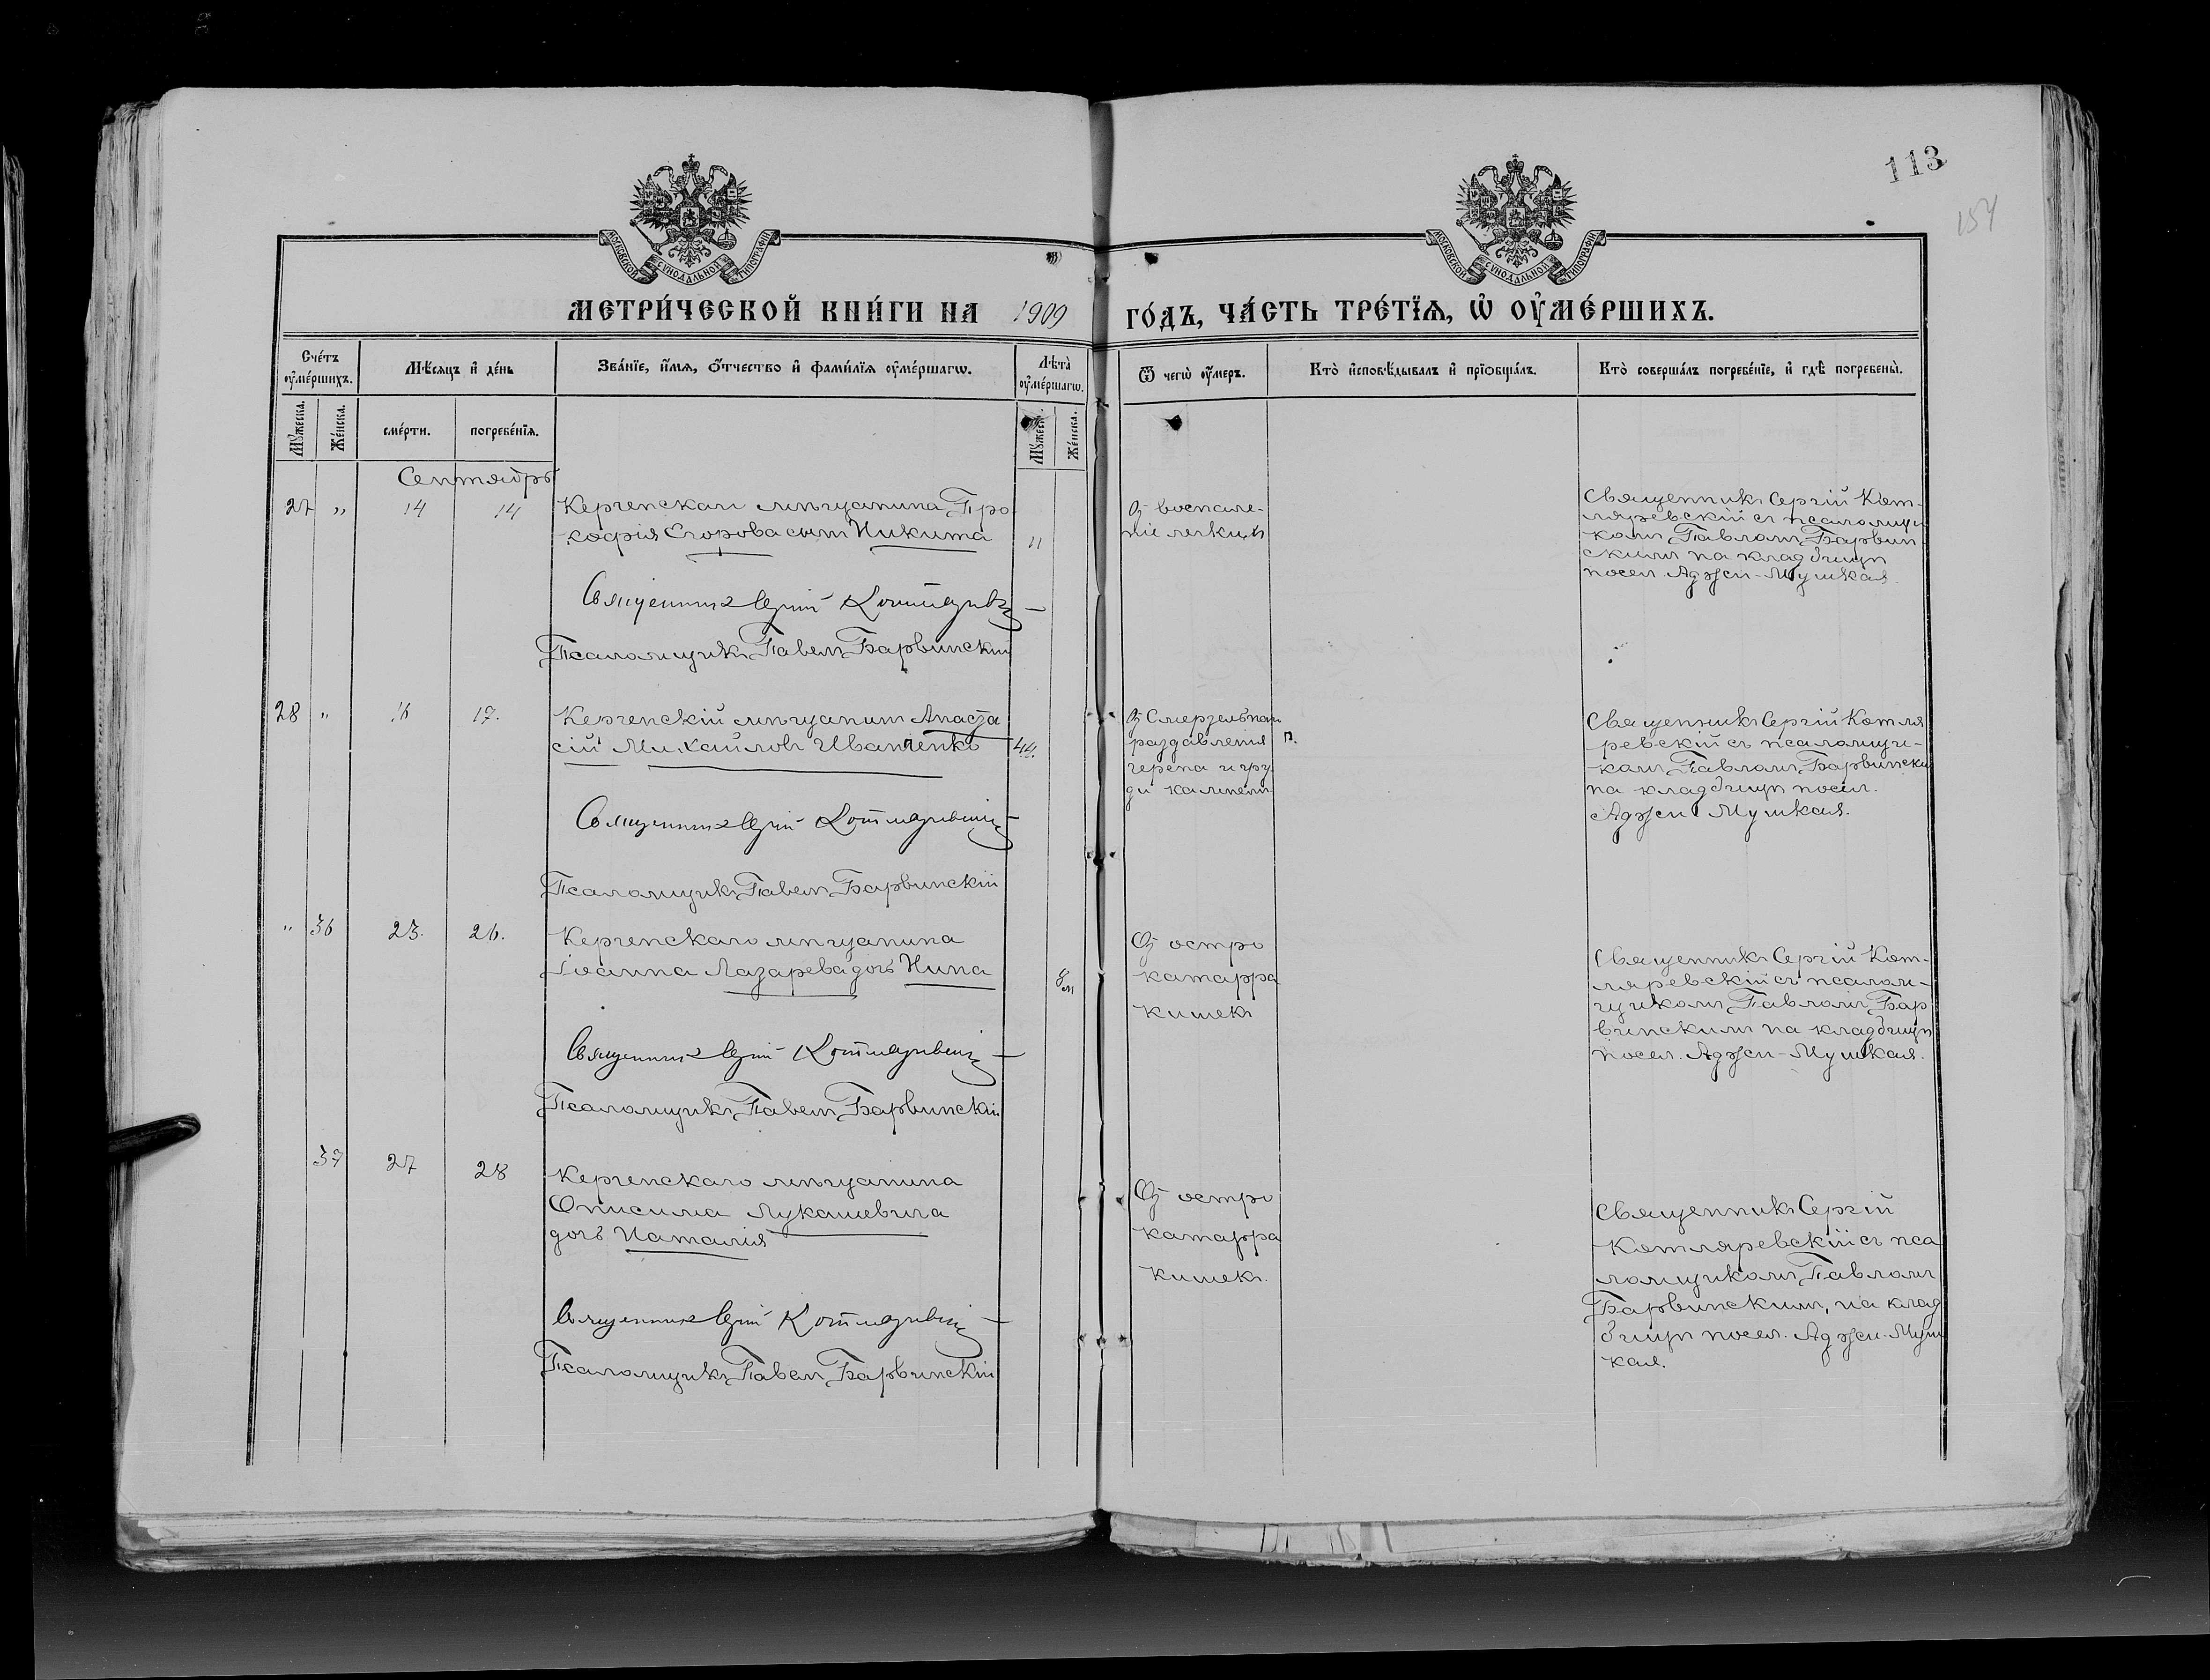 113
154
МОСКОВСКОЙ СУНОДАЛЬНОЙ ТИПОГРАФІИ
МОСКОВСКОЙ СУНОДАЛЬНОЙ ТИПОГРАФІИ
МЕТРИ́ЧЕСКОЙ КНИ́ГИ НА 1909 ГО́ДЪ, ЧА́СТЬ ТРЕ́ТЇѦ, Ѡ ОУ҆МЕ́РШИХЪ.
Сче́тъ оу҆ме́ршихъ.
Мѣ́сяцъ и҆ де́нь
Зва́нїе, и҆́мѧ, ѻ҆́тчество и҆ фами́лїѧ оу҆ме́ршагѡ.
Лѣта̀ оу҆ме́ршагѡ.
Ѿ чегѡ̀ оу҆́меръ.
Кто̀ и҆сповѣ́дывалъ и҆ прїѻбща́лъ.
Кто̀ соверша́лъ погребе́нїе, и҆ гдѣ̀ погребены̀.
Мꙋ́жеска.
Же́нска.
сме́рти.
погребе́нїѧ.
Мꙋ́жеска.
Же́нска.
Сентябрь
27 " 14 14
Керченскаго мѣщанина Про
кофія Егорова сынъ Никита
11
От воспале-
ніе легкихъ
Священникъ Сергій Кот-
ляревскій съ псаломщи
комъ Павломъ Барвин
скимъ на кладбищѣ
посел. Аджи-Мушкая.
Священникъ Сергій Котляревск
Псаломщикъ Павелъ Барвинскій
28 " 16 17.
Керченскій мѣщанинъ Анаста
сій Михайловъ Иванченко
44.
От Смертельнаго
раздавленія
черепа и гру
ди камнемъ
п.
Священникъ Сергій Котля
ревскій съ псаломщи-
комъ Павломъ Барвински
на кладбищѣ посел.
Аджи Мушкая.
Священникъ Сергій Котляревскій
Псаломщикъ Павелъ Барвинскій
" 36 23. 26.
Керченскаго мѣщанина
Іоанна Лазарева дочь Нина
8 м
От остро
катарра
кишекъ
Священникъ Сергій Кот-
ляревскій съ псалом-
щикомъ Павломъ Бар
винскимъ на кладбищѣ
посел. Аджи-Мушкая.
Священникъ Сергій Котляревскій
Псаломщикъ Павелъ Барвинскій
37 27 28
Керченскаго мѣщанина
Онисима Лукашевича
дочь Наталія
От остро
катарра
кишекъ.
Священникъ Сергій
Котляревскій съ пса
ломщикомъ Павломъ
Барвинскимъ, на клад
бищѣ посел. Аджи-Муш
кая.
Священникъ Сергій Котляревскій
Псаломщикъ Павелъ Барвинскій